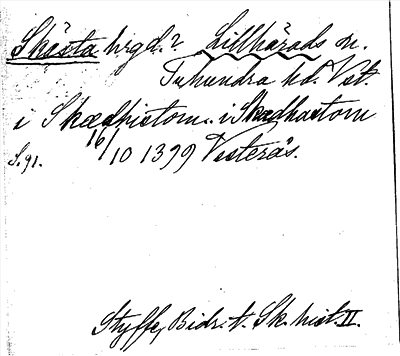 Skästa hrgd.? Lillhärads sn.
Tuhundra hd. Vst.
i Skædhistom. i Skædhastom
S. 91. 16/10 1399 Vesterås.
Styffe, Bidr. t. Sk. hist. II.